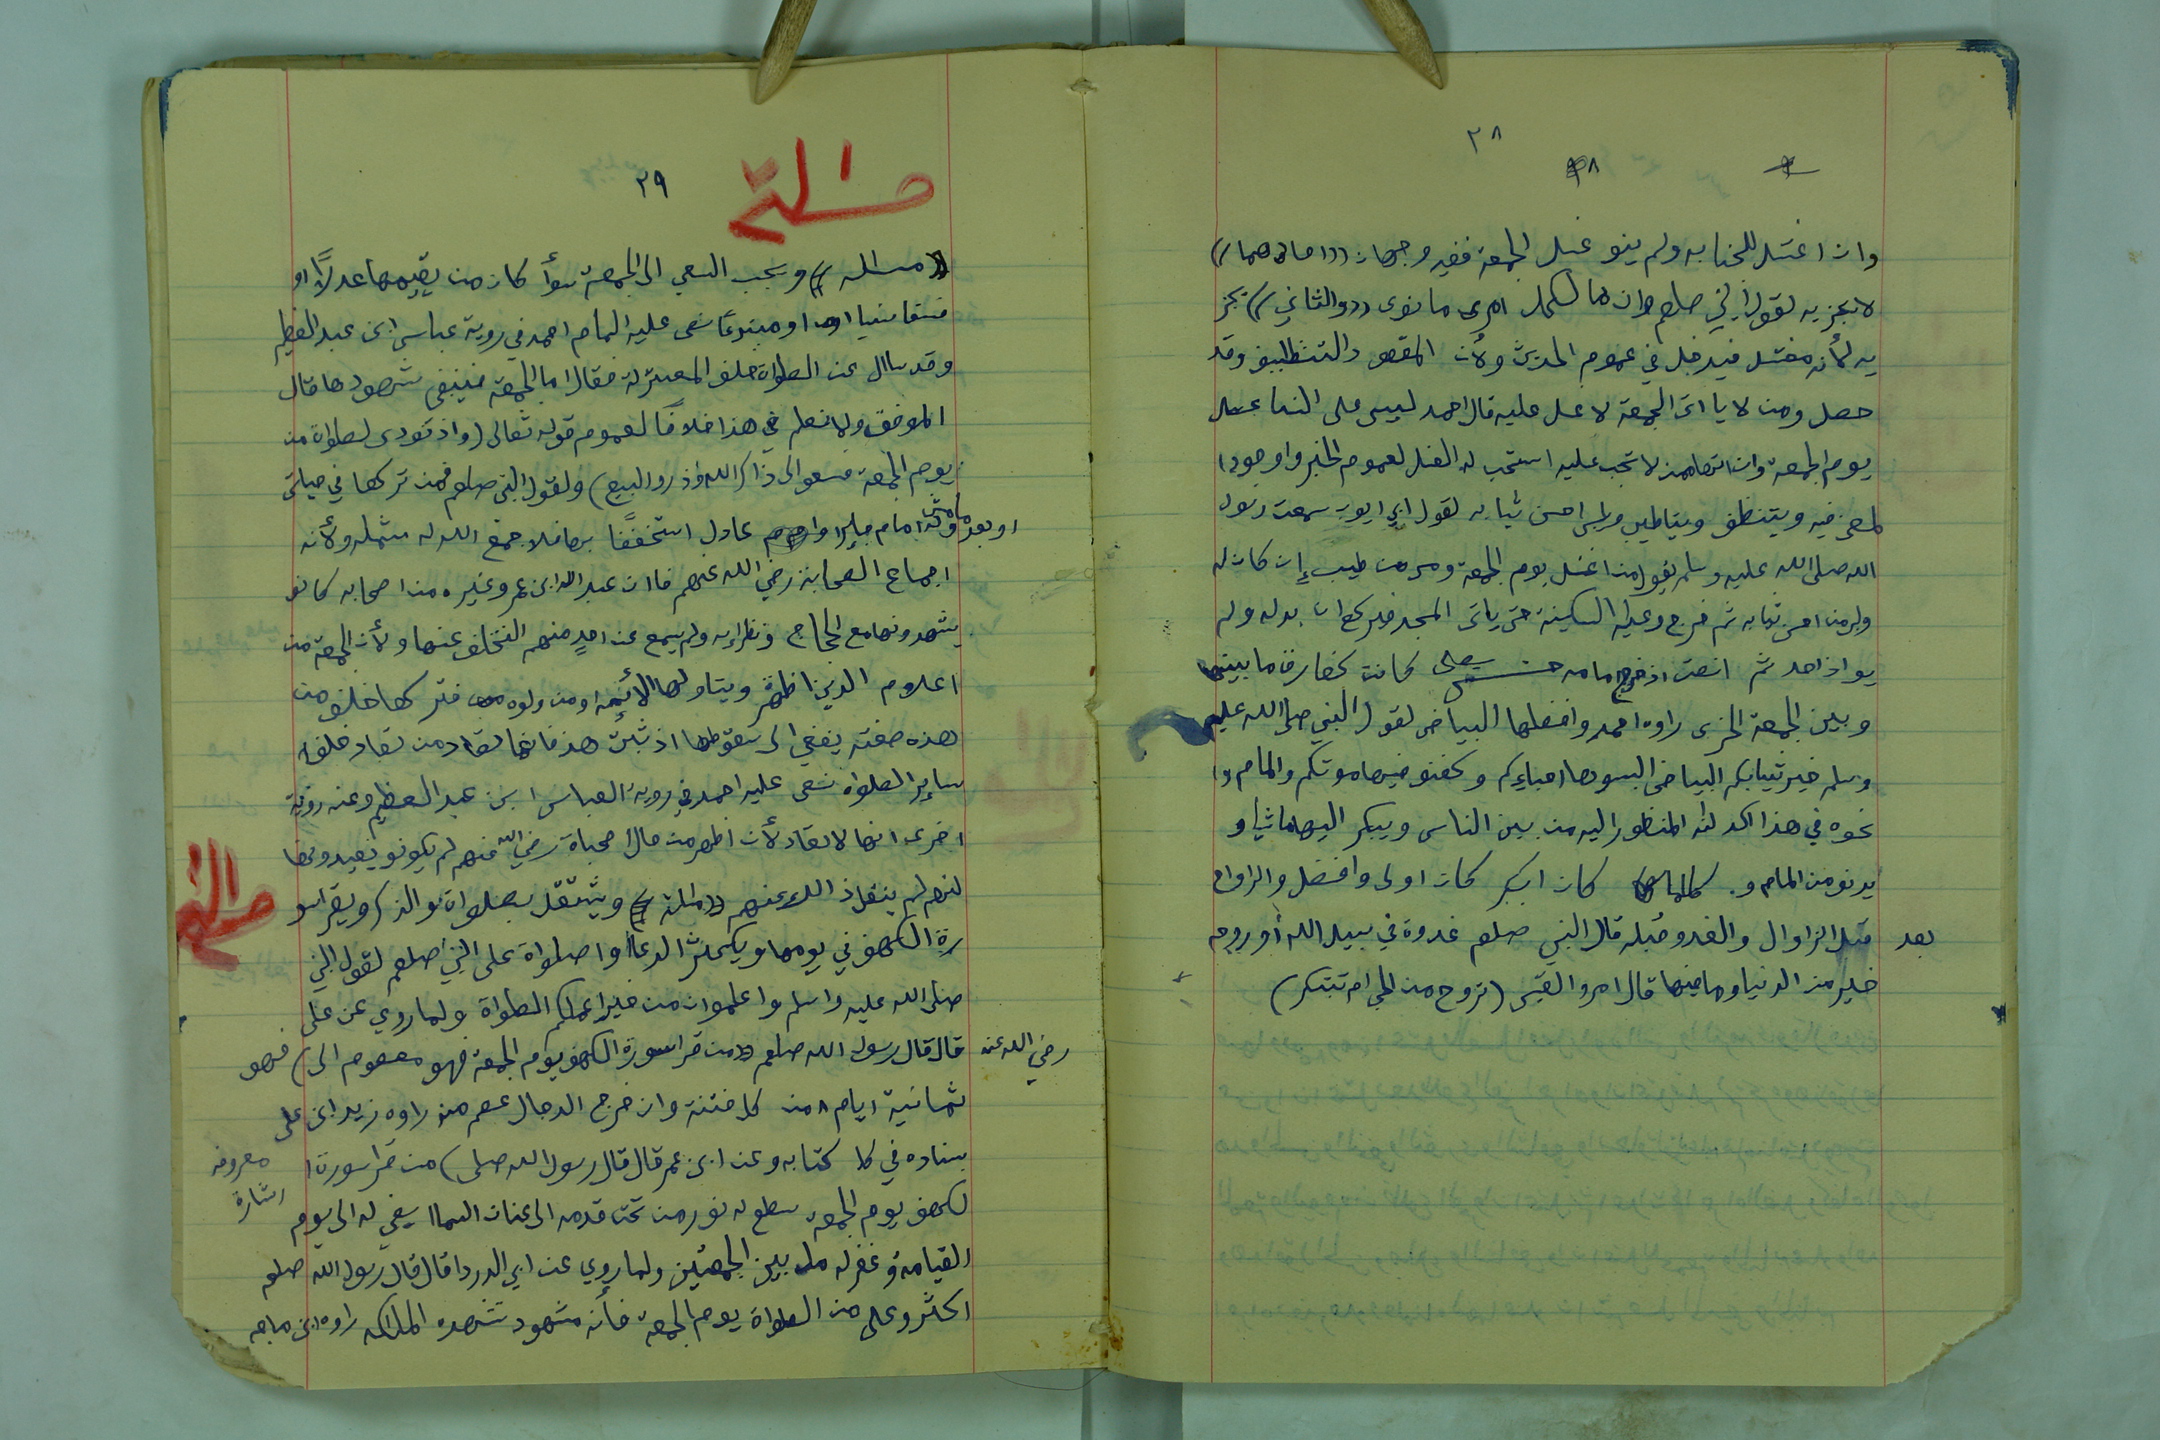 ٢٨
وان اغتسل للجنابه ولم ينو غسل الجمعة ففيه وجهان ((احادهما))
لا يجزيه لقول النبي صلعم وان ما لكل امرى ما نوى ((والثاني)) يجز
يه لأنه مغتسل فيدخل في عموم الحديث ولأن المقصود التنظيف وقد
حصل ومن لا ياات الجمعة لا غسل عليه قال احمد ليس على النسا غسل
يوم الجمعة وان اتاهامن لا تجب عليه استحب له الغسل لعموم الخبر واوجودا
لمعنى فيه ويتنظف ويتاطيب ويلبس احسن ثيابه لقول ابي ايوب سمعت رسول
الله صلى الله عليه وسلم يقول من اغتسل يوم الجمعة ومس من طيب إن كان له
ولبس من احسن ثيابه ثم خرج وعليه السكينة حتى ياتى المسجد فيركع ان بدله ولم
يواذ احد ثم انصت اذ خرج امامه حتى يصلى كانت كفارة ما بينها
وبين الجمعة الخرى راوه احمد وافضلها البياض لقول النبي صلى الله عليه
وسلم خير ثيابكم البياض البسوها احياءكم وكفنو فيها موتكم والمام وا
نحوه في هذا اكد لنه المنظور اليه من بين الناس ويبكر اليها ماشيا و
يدنو من المام و. كلما كان ابكر كان اولى وافضل والراواح
بعد
قبل الزاوال والغدو قبله قال النبي صلعم غدوة في سبيل الله أو روحه
خير من الدنيا وما فيها قال امرو القيس (تروح من الحي ام تبتكر)
٢٩
مسالة
((مساله)) ويجب السعي الى الجمعة سوأ كان من يقيمها عدلاً او
فتقا سنيا او مبتدعًا نص عليه المام احمد في روية عباس ابن عبد العظيم
وقد ساال عن الصلواة خلف المعتزلة فقال اما الجمعة فينبغي شهودها قال
الموفق ولا نعلم في هذا خلافًا لعموم قوله تعالى (واذ نودى لصلواة من
يوم الجمعة فسعو الى ذاكر الله وذرو البيع) ولقول النبي صلعم فمن تركها في حياتى
او بعد مامتى وله امام جاير او عادل استخففًا بها فلا جمع الله له شمله ولأنه
اجماع الصحابة رضي الله عنهم فاان عبد الله ابن عمر وغيره من اصحابه كانو
يشهدونها مع الحجاج ونظراءيه ولم يسمع عن احدٍ منهم التخلف عنها ولأن الجمعة من
اعلام الدين اظهرة ويتاولها الأئمه او من ولوه فتركها خلف من
هذه صفته يفضي الى سقوطها اذ ثبت هذ فانها تعاد من تعاد خلفه
ساير الصلواة نص عليه احمد في روية العباس ابن عبد العظيم وعنه روية
اخرى انها لا تعاد لأن اظهر من حال أصحباة رضي الله عنهم لم يكونو يعيدونها
لنه لم ينقل ذالك عنهم ((مسالة)) ويشتغل بصلواة والذكر ويقرا سو
مسالة
رة الكهف في يومها ويكثر الدعأ واصلواة على النبي صلعم لقول النبي
صلى الله عليه واسلم واعلموا ان من خير اعملكم الصلواة ولما روي عن على
رضي الله عنه
قال قال رسول الله صلعم ((من قرا سورة الكهف يوم الجمعة فهو معصوم الى) فهو
ثمانية ايام ٨ من كل فتنة وان خرج الدجال عصم منه راوه زيد ابن على
بسناده في كتابه وعن ابن عمر قال قال رسول الله صلى) من قرا سورة ا
معروفه
اشارة
لكهف يوم الجمعة سطع له نور من تحت قدمه الى عنان السما يضي له الى يوم
القيامة وغفر له ما بين الجمعتين ولما روي عن ابي الدردا قال قال رسول الله صلعم
اكثرو على من الصلواة يوم الجمعة فأنه مشهود تشهده الملاكه راوه ابن ماجه